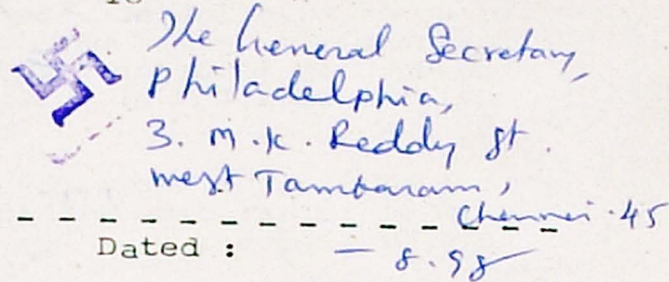 The General Secretary,
Philadelphia,
3. M.K. Reddy St.
West Tambaram,
Chennai-45
Dated : — 8.98